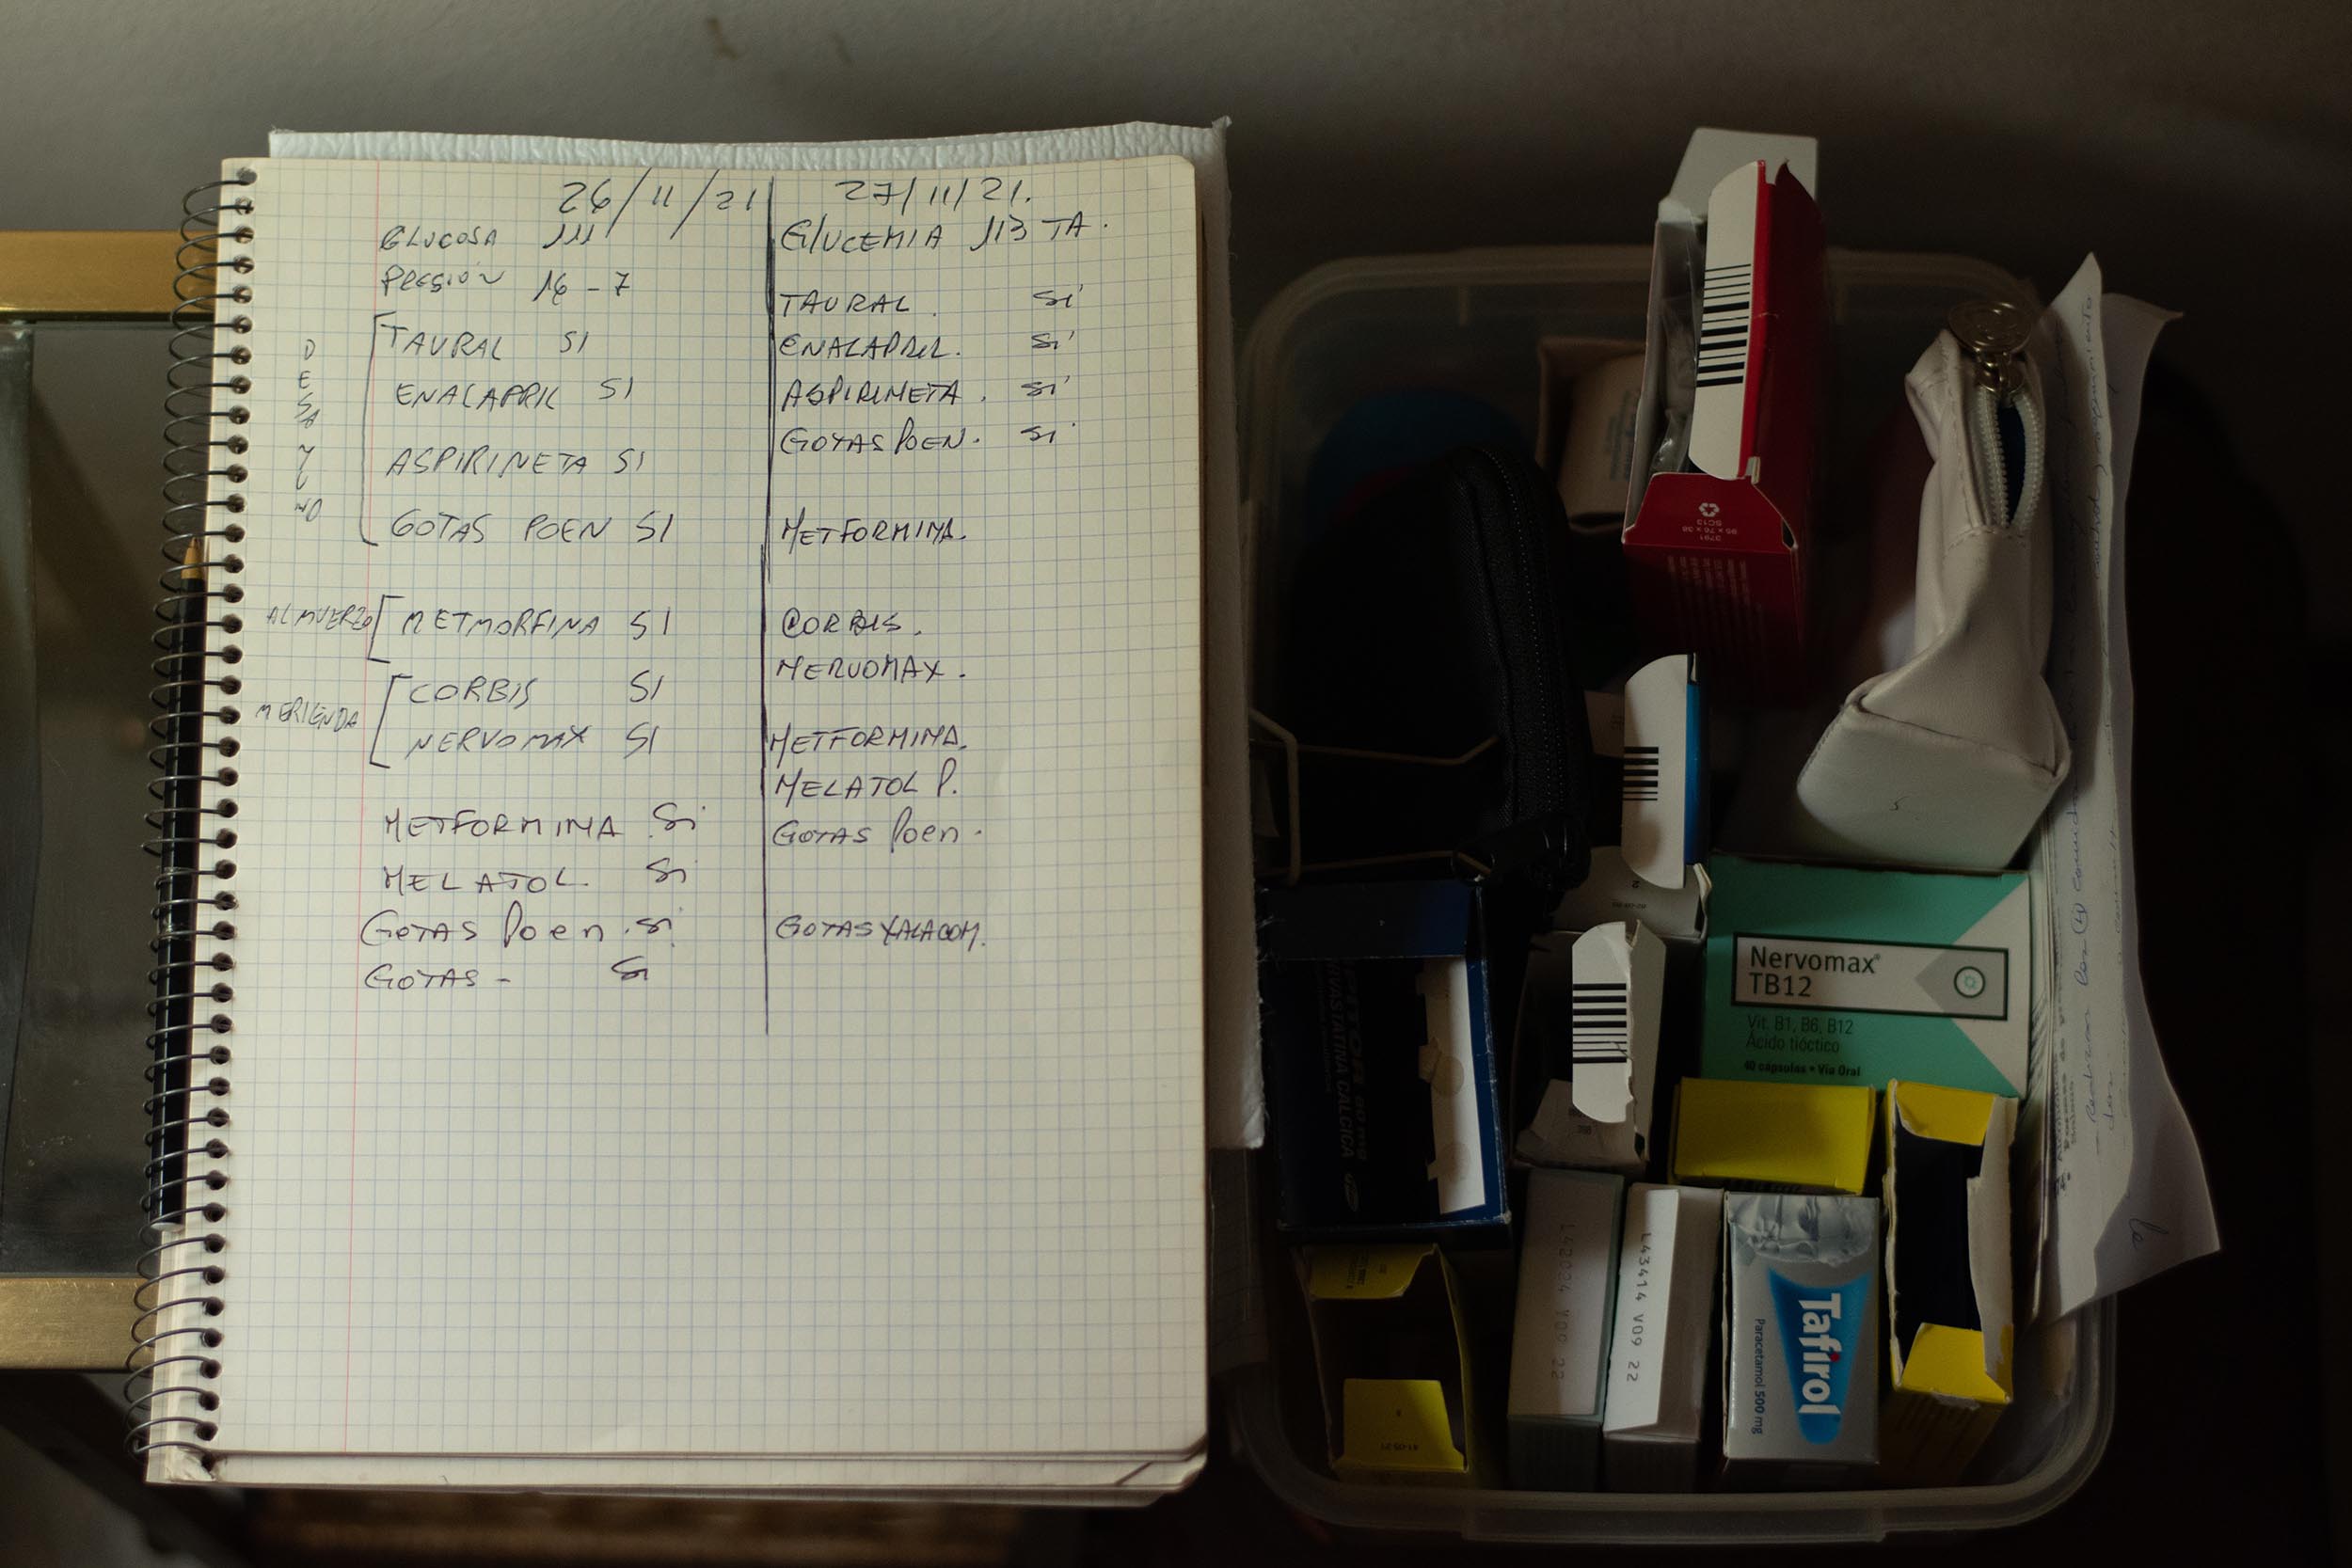 26/11/21
GLUCOSA 111
PRESION 16-7
DESAYUNO
TAURAL SI
ENALAPRIL SI
ASPIRINETA SI
GOTAS POEN SI
ALMUERZO
METMORFINA SI
MERIENDA
CORBIS SI
NERVOMAX SI
METFORMINA Si
MELATOL. Si
GOTAS Poen. Si
GOTAS - Si
27/11/21.
GlUCEMIA 113 TA.
TAURAL. Si
ENALAPRIL. Si
ASPIRINETA. Si
GOTAS POEN. Si
METFORMINA.
CORBIS.
NERVOMAX.
METFORMINA.
MELATOL P.
GOTAS Poen.
GOTAS XALACOM.
0791
95 x 76 x 38
SC13
Nervomax®
TB12
Vit. B1, B6, B12
Ácido tióctico
40 cápsulas • Vía Oral
L43414 V09 22
Tafirol
Paracetamol 500 mg